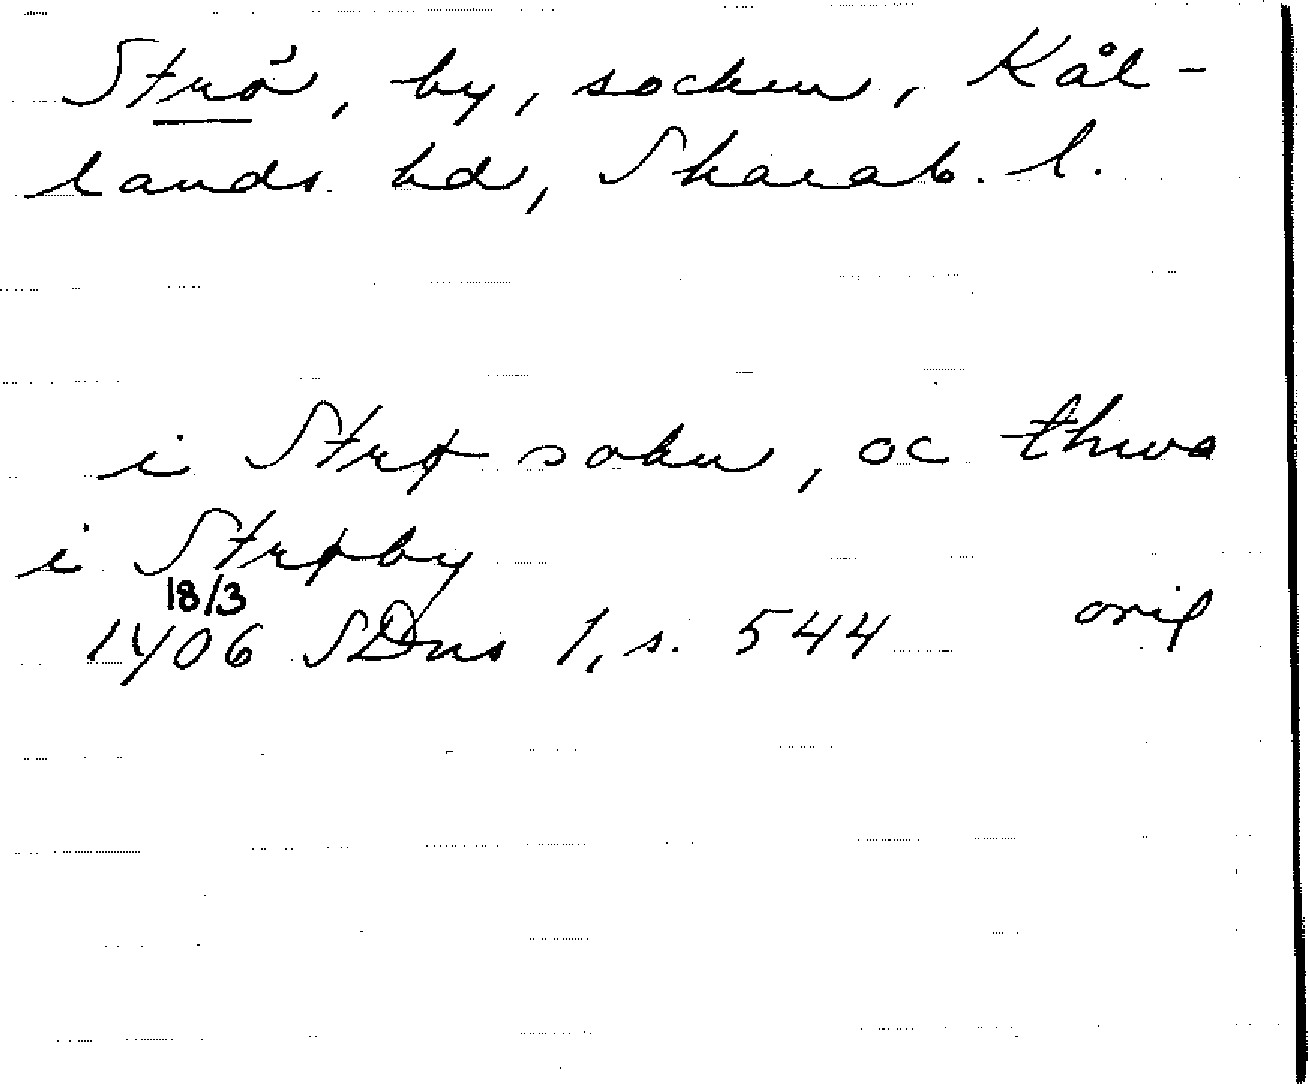 Strö, by, socken, Kål-
lands hd, Skarab. l.
i Strø sokn, oc thwa
i Strøby
18/3
1406 SDns 1, s. 544 orig